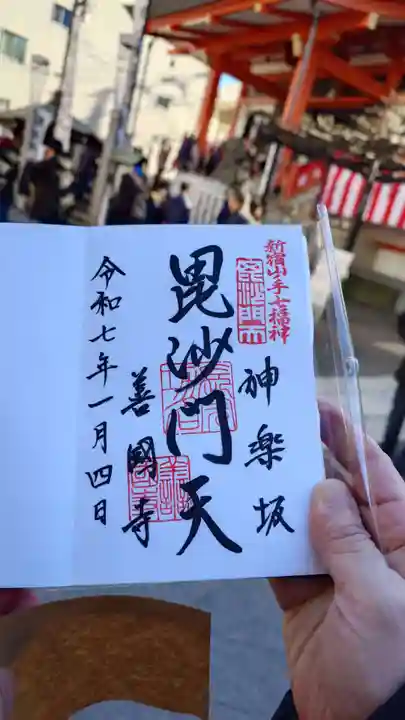 新宿山ノ手七福神
毘沙門天
神楽坂
毘沙門天
善國寺
令和七年一月四日